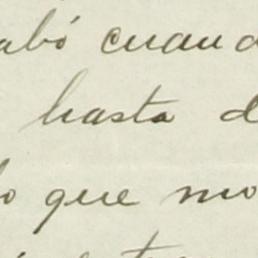 abó cuand
hasta d
o que mo